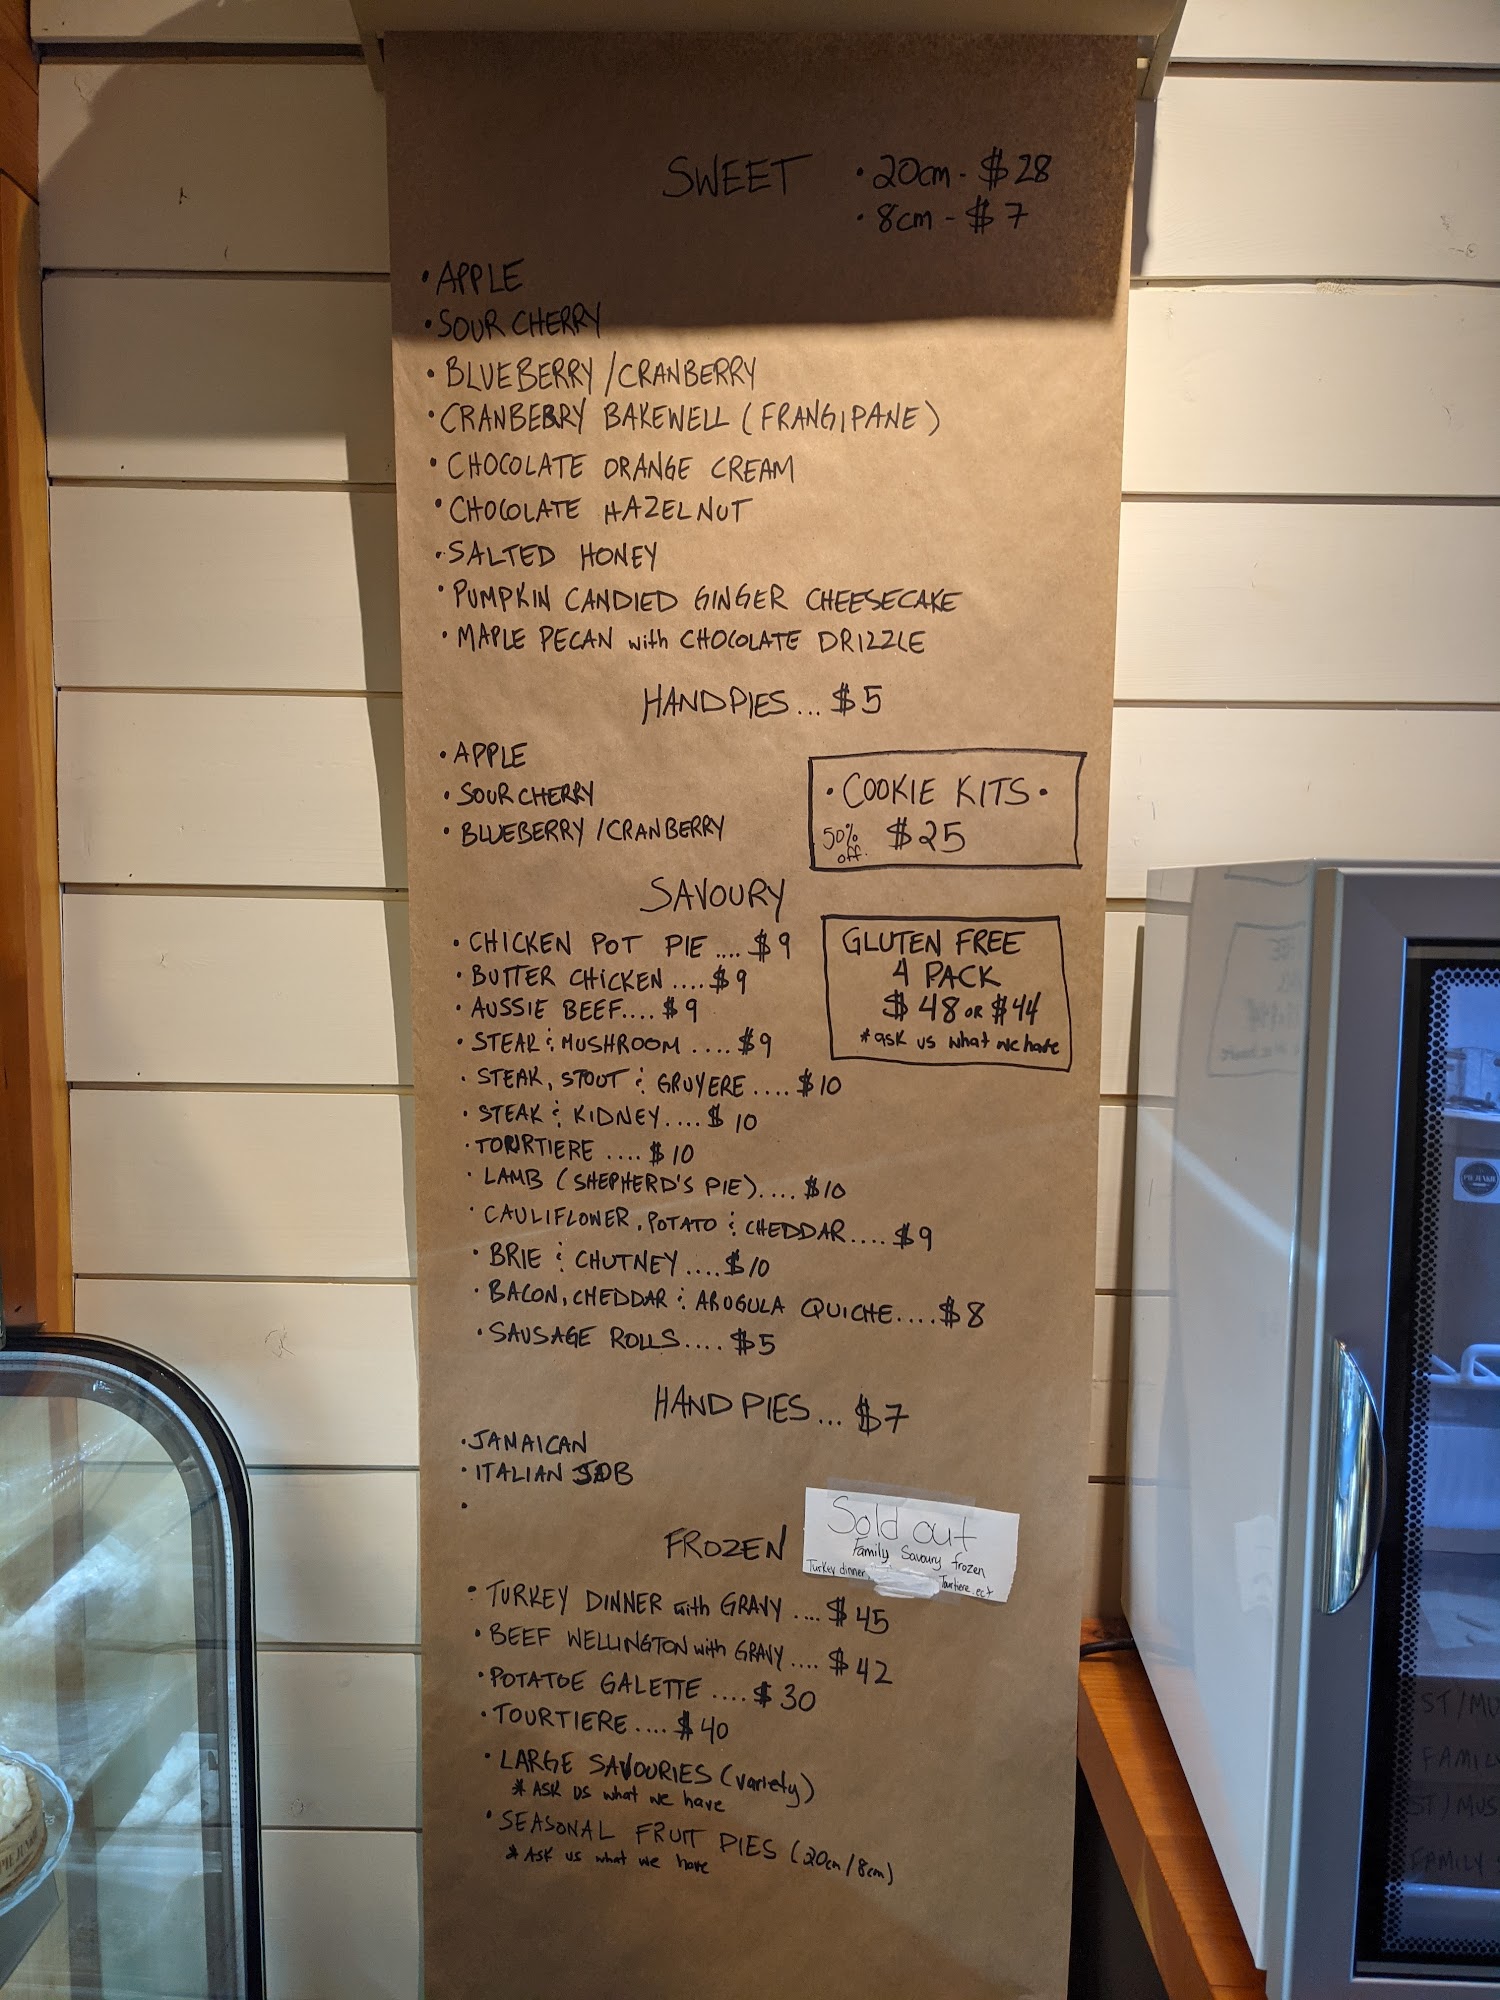 SWEET
• 20cm - $28
• 8cm - $7
• APPLE
• SOUR CHERRY
• BLUEBERRY / CRANBERRY
• CRANBERRY BAKEWELL (FRANGIPANE)
• CHOCOLATE ORANGE CREAM
• CHOCOLATE HAZELNUT
• SALTED HONEY
• PUMPKIN CANDIED GINGER CHEESECAKE
• MAPLE PECAN with CHOCOLATE DRIZZLE
HANDPIES... $5
• APPLE
• SOUR CHERRY
• BLUEBERRY / CRANBERRY
• COOKIE KITS •
50% off. $25
SAVOURY
• CHICKEN POT PIE .... $9
• BUTTER CHICKEN .... $9
• AUSSIE BEEF.... $9
• STEAK & MUSHROOM .... $9
• STEAK, STOUT & GRUYERE .... $10
• STEAK & KIDNEY.... $10
• TOURTIERE .... $10
• LAMB (SHEPHERD'S PIE).... $10
• CAULIFLOWER, POTATO & CHEDDAR.... $9
• BRIE & CHUTNEY .... $10
• BACON, CHEDDAR & ARUGULA QUICHE.... $8
• SAUSAGE ROLLS.... $5
GLUTEN FREE
4 PACK
$48 OR $44
* ask us what we have
HAND PIES... $7
• JAMAICAN
• ITALIAN JOB
•
FROZEN
Sold out
Family Savoury frozen
Turkey dinner, Tourtiere ect
• TURKEY DINNER with GRAVY .... $45
• BEEF WELLINGTON with GRAVY .... $42
• POTATOE GALETTE .... $30
• TOURTIERE.... $40
• LARGE SAVOURIES (variety)
* ASK US what we have
• SEASONAL FRUIT PIES (20cm / 8cm)
* ASK us what we have
PIE JUNKIE
ST / MU
FAMIL
ST / MUS
FAMILY